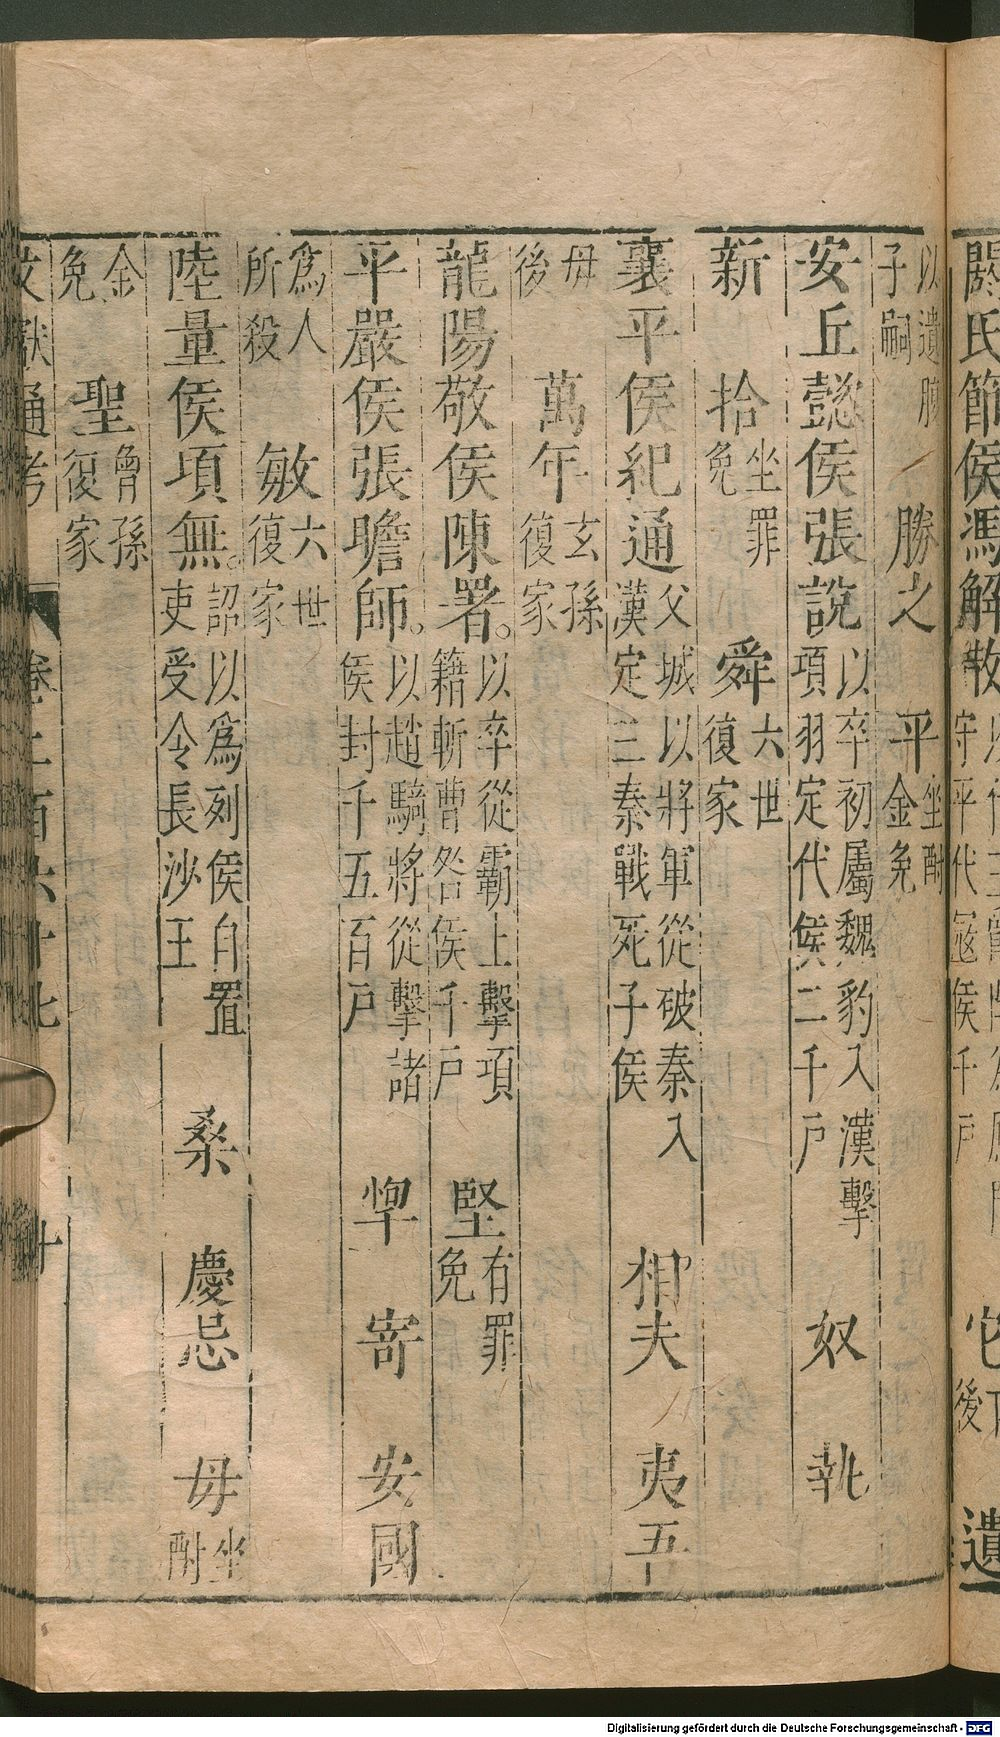 閼氏節侯馮解散 它 遺
以遺腹子嗣 勝之 平 坐酎金免
安丘懿侯張說 以卒初屬魏豹入漢擊項羽定代侯二千戶 奴 執
新 拾 坐罪免 舜 六世復家
襄平侯紀通 父城以將軍從破秦入漢定三秦戰死子侯 相夫 夷吾
毋後 萬年 玄孫復家
龍陽敬侯陳署。 以卒從霸上擊項籍斬曹咎侯千戶 堅 有罪免
平嚴侯張瞻師。 以趙騎將從擊諸侯封千五百戶 惸 寄 安國
為人所殺 敏 六世復家
陸量侯項無。 詔以為列侯自置吏受令長沙王 桑 慶忌 毋 坐酎
金免 聖 曾孫復家
文獻通考 卷二百六十七 廿
Digitalisierung gefördert durch die Deutsche Forschungsgemeinschaft - DFG